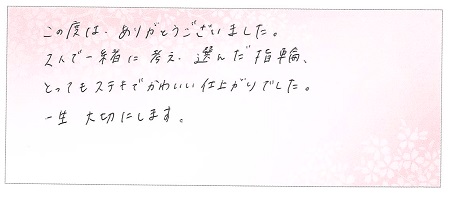 この度は、ありがとうございました。
2人で一緒に考え、選んだ指輪、
とってもステキでかわいい仕上がりでした。
一生 大切にします。